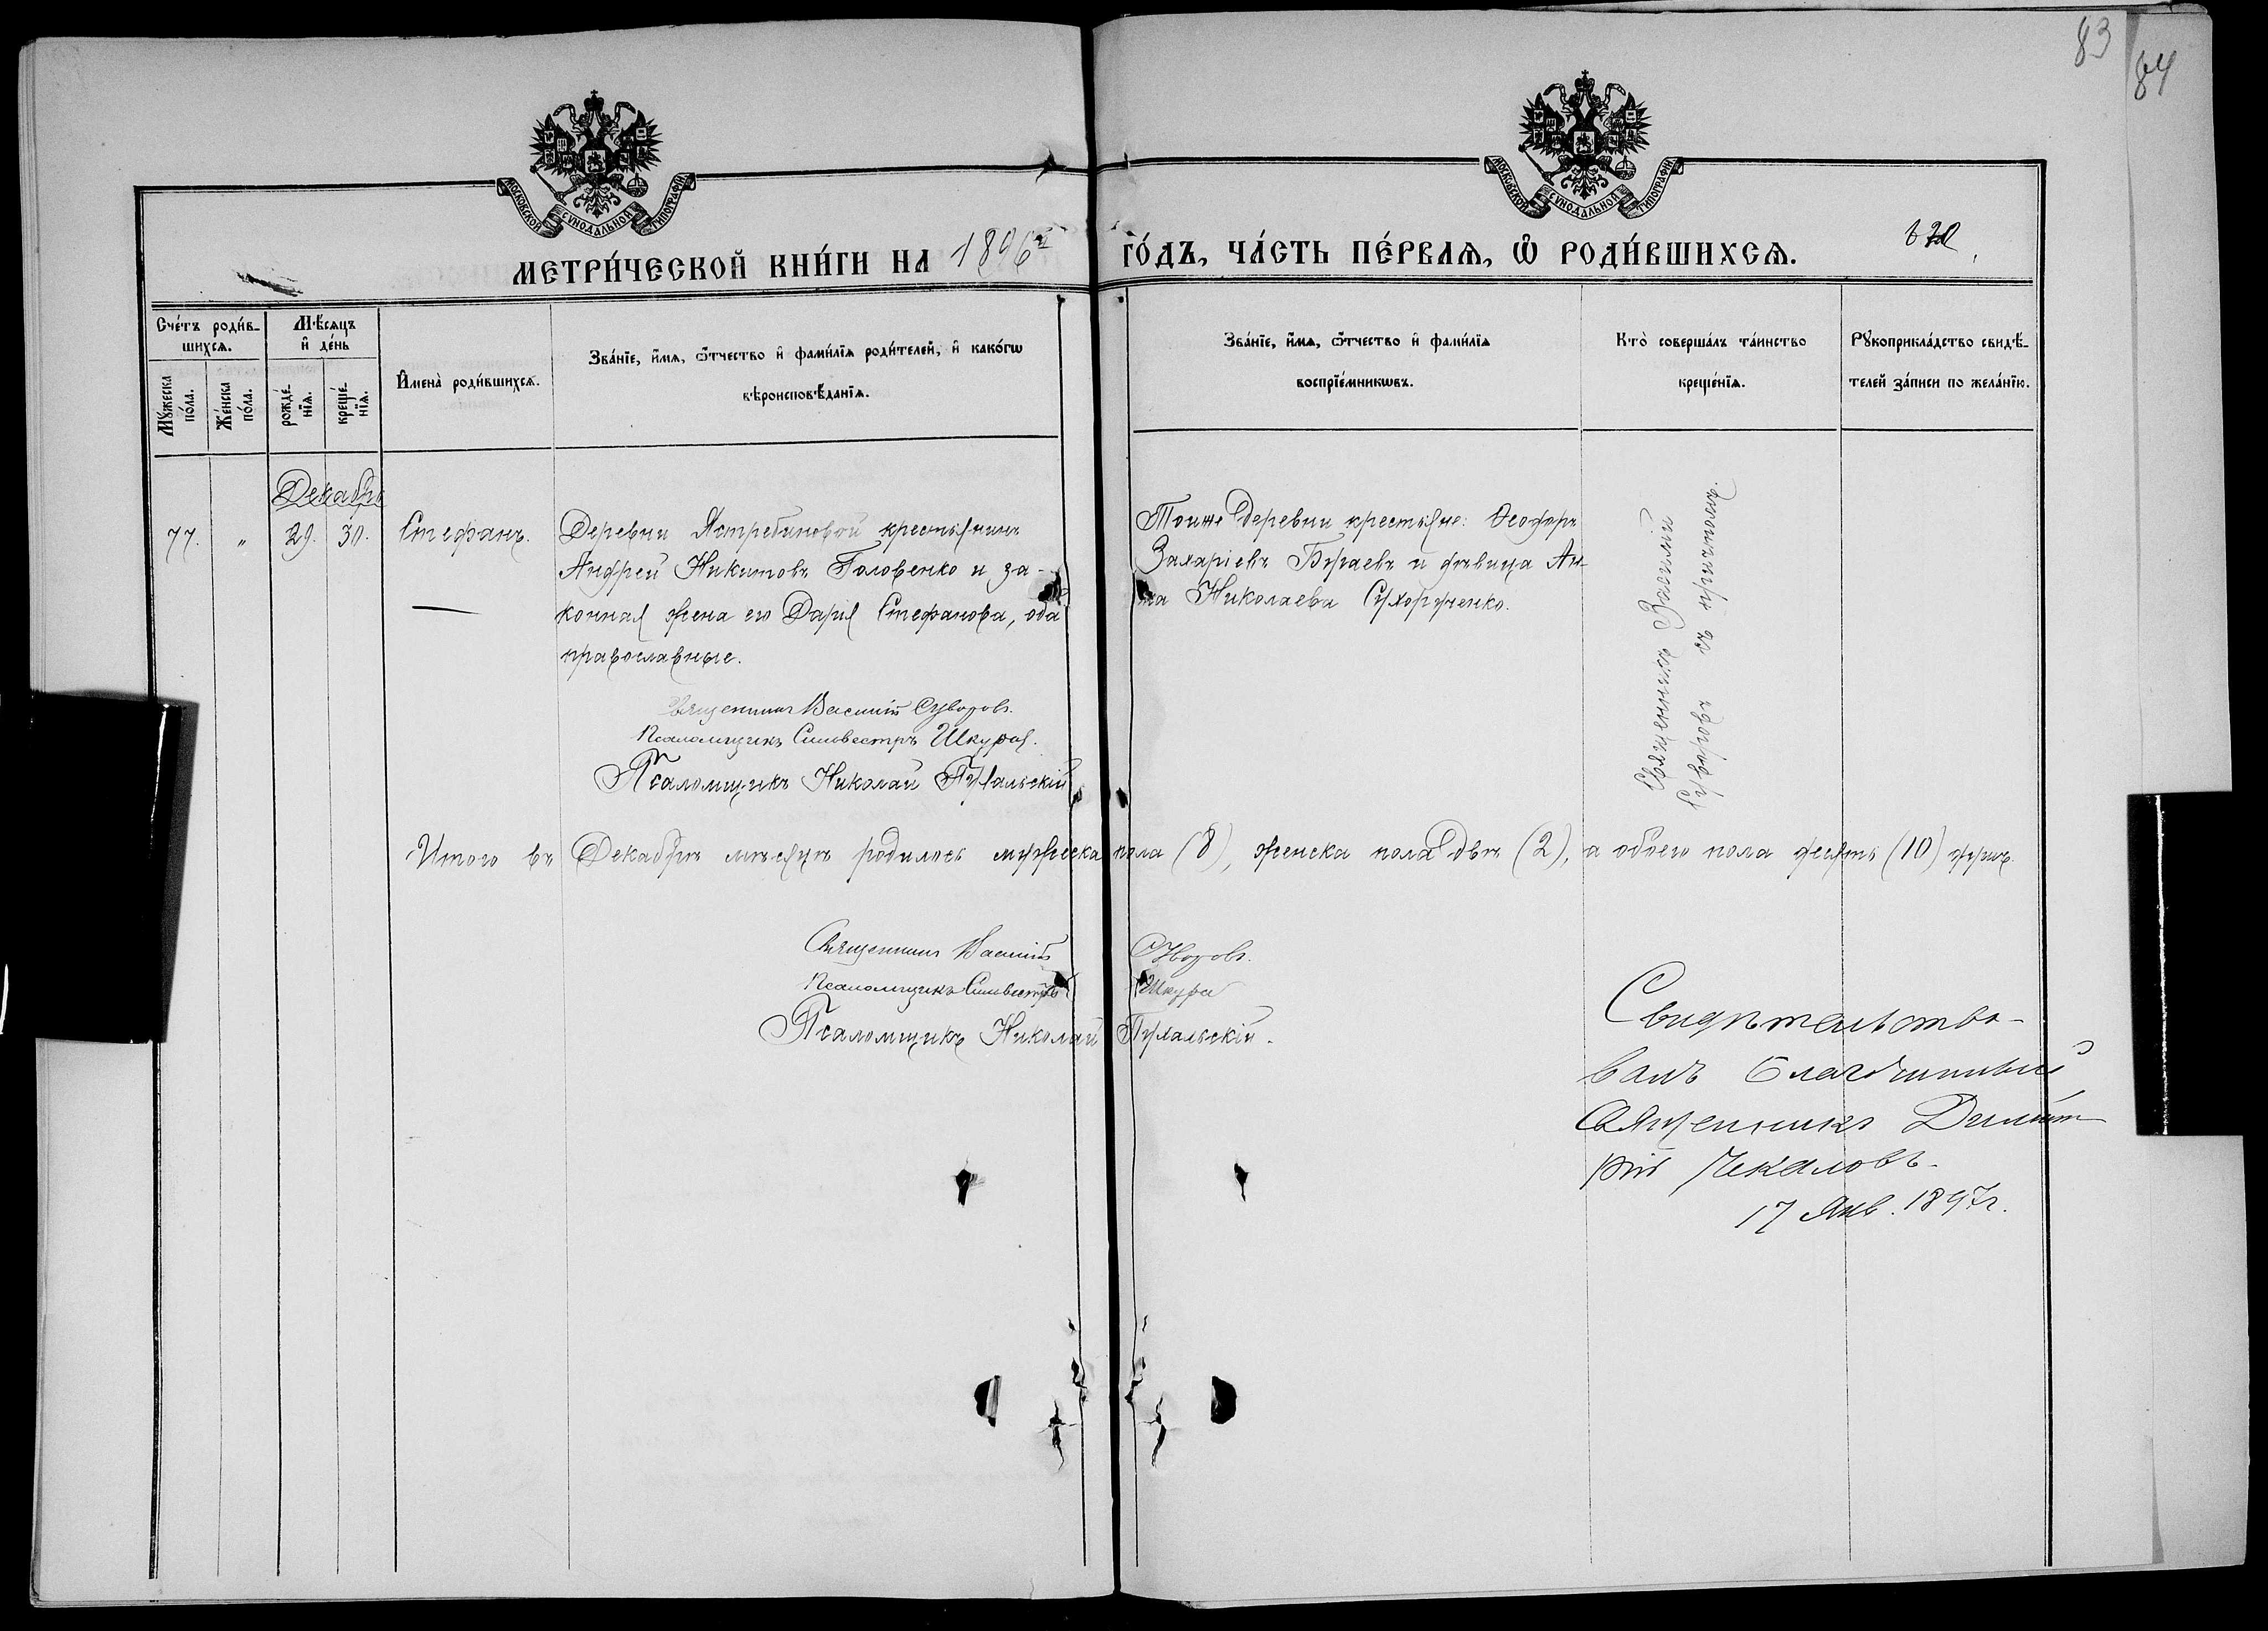 83
84
МОСКОВСКОЙ СѴНОДАЛЬНОЙ ТИПОГРАФІИ
МОСКОВСКОЙ СѴНОДАЛЬНОЙ ТИПОГРАФІИ
МЕТРИ́ЧЕСКОЙ КНИ́ГИ НА 1896й ГО́ДЪ, ЧА́СТЬ ПЕ́РВАѦ, Ѽ РОДИ́ВШИХСѦ.
Сче́тъ роди́в-
шихсѧ.
Мѣ́сѧцъ
и҆ де́нь
Мꙋ́жеска
по́ла.
Же́нска
по́ла.
рожде́-
нїѧ.
креще́-
нїѧ.
И҆мена̀ роди́вшихсѧ.
Зва́нїе, и҆́мѧ, ѻ҆́тчество и҆ фами́лїѧ роди́телей, и҆ како́гѡ
вѣроисповѣ́данїѧ.
Зва́нїе, и҆́мѧ, ѻ҆́тчество и҆ фами́лїѧ
воспрїе́мникѡвъ.
Кто̀ соверша́лъ та́инство
креще́нїѧ.
Рꙋкоприкла́дство свидѣ́-
телей за́писи по жела́нїю.
Декабрь
77. " 29. 30. Стефанъ.
Деревни Ястребиновой крестьянинъ
Андрей Никитовъ Головенко и за-
конная жена его Дарія Стефанова, оба
православные.
Тоиже деревни крестьяне: Ѳеодоръ
Захаріевъ Бураевъ и дѣвица Ан-
на Николаева Сухорученко.
Священникъ Василій
Суворовъ съ причтомъ.
Священникъ Василій Суворовъ.
Псаломщикъ Сильвестръ Шкура.
Псаломщикъ Николай Пухальскій
Итого въ Декабрѣ мѣсяцѣ родилось мужеска пола (8), женска пола двѣ (2), а обоего пола десять (10) душъ.
Священникъ Василій Суворовъ.
Псаломщикъ Сильвестръ Шкура
Псаломщикъ Николай Пухальскій.
Свидѣтельство-
валъ Благочинный
Священникъ Димит-
рій Чекаловъ.
17 Янв. 1897г.